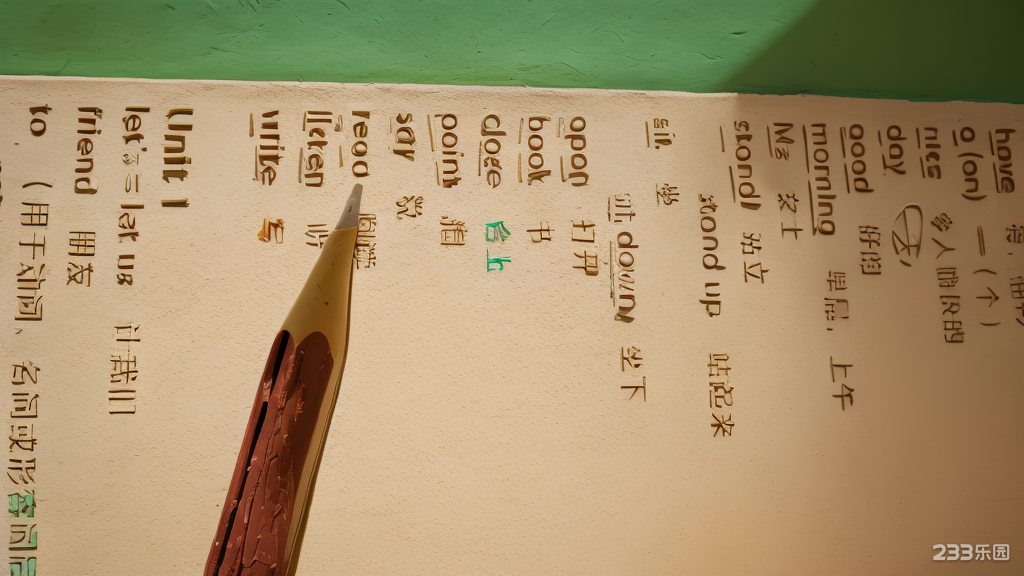 have
a (an) 一 (个)
nice 令人
day
good 好的
morning 早晨, 上午
Ms 女士
stand 站立
stand up 站起来
sit 坐
down 坐下
open 打开
book 书
close 合上
point 指
say 说
read
listen 听
write
Unit 1
let's = let us 让我们
friend 朋友
to (用于动词、名词或形容词后
233乐园